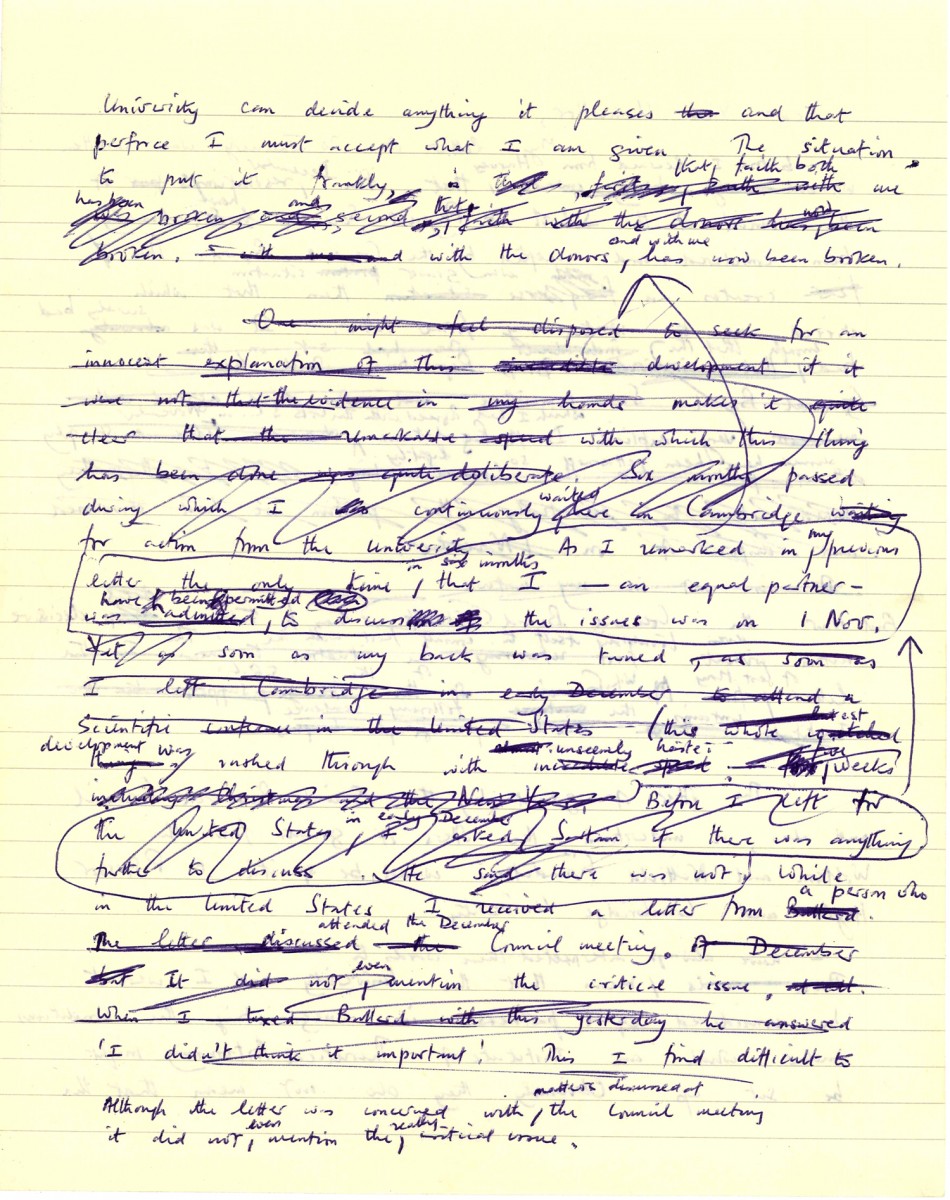 University can decide anything it pleases the and that
perforce I must accept what I am given. The situation
that, faith both
to put it frankly, is
has been and that now
broken second, faith with the donors has been
and with me
broken. with me and with the donors, has now been broken.
One might feel disposed to seek for an
innocent explanation of this incredible development if it
were not that the evidence in my hands makes it quite
clear that the remarkable speed with which this thing
has been done was quite deliberate. Six months passed
waited
during which I continuously there in Cambridge waiting
my
for action from the University. As I remarked in previous
in six months
letter, the only time, that I — an equal partner —
have been permitted
was admitted, to discuss the issues was on 1 Nov.
Yet as soon as my back was turned, as soon as
I left Cambridge in early December to attend a
latest
Scientific conference in the United States (this whole
development was unseemly haste: five
rushed through with incredible speed — weeks
including Christmas and the New Year. Before I left for
in early December
the United States, I asked if there was anything
further to discuss. He said there was not, while
a person who
in the United States I received a letter from Bullard.
attended the December
The letter discussed the Council meeting. of December
even
but It did not, mention the critical issue, at all.
When I taxed Bullard with this yesterday he answered
'I didn't think it important'. This I find difficult to
matters discussed at
Although the letter was concerned with, the Council meeting
even really
it did not, mention the, critical issue.